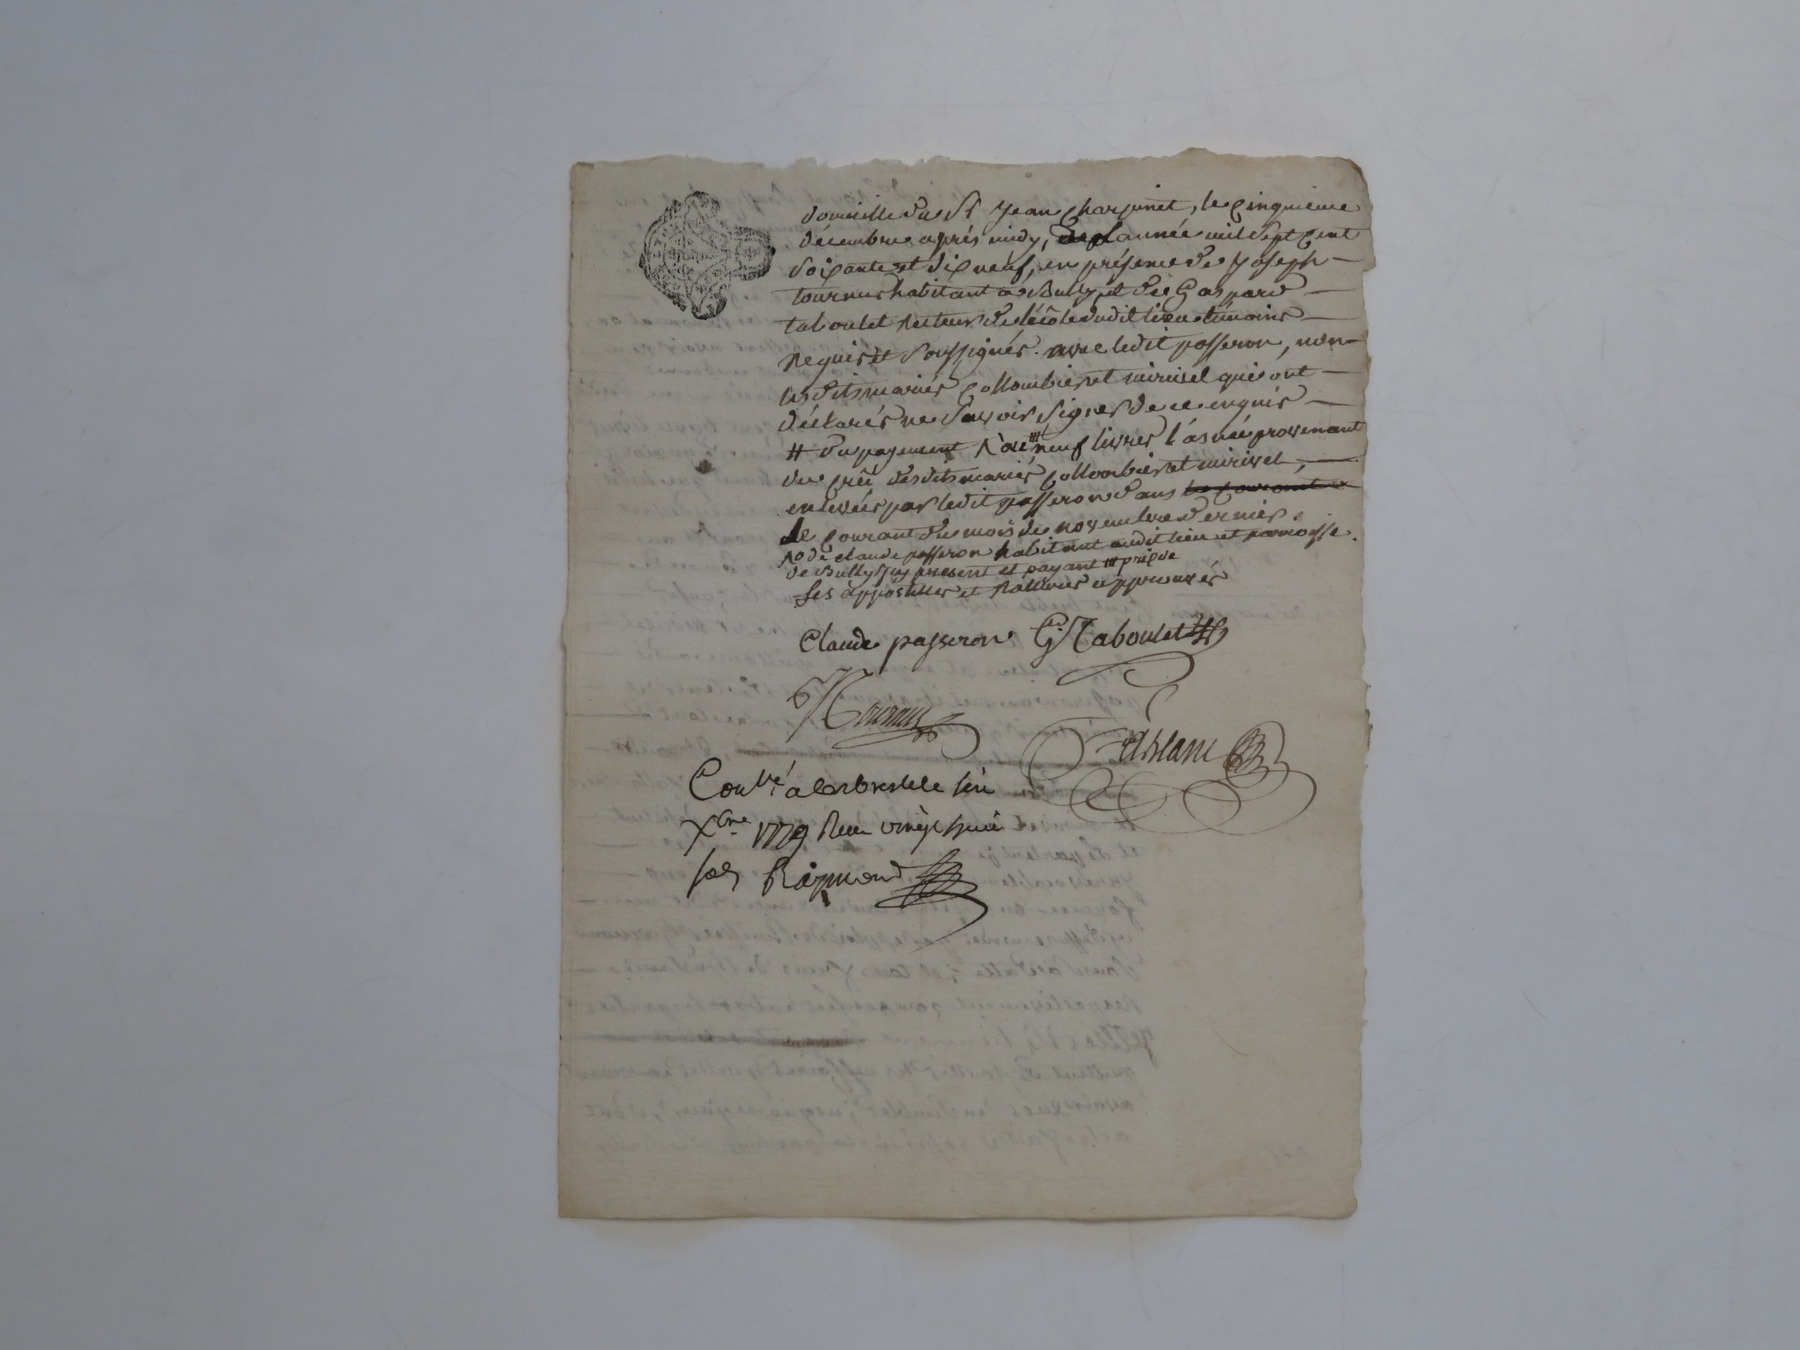 domicille du Sr Jean Charpinet, le cinquieme
décembre après midy, de l'année mil sept cent
soixante et dix neuf, en présence de Joseph
tournus habitant a Bully et de Gaspard
taboulet Recteur de l'école dudit lieu témoins
Requis et soussignés. avec ledit passeron, non
lesdits mariés Collombier et mirivel qui ont
déclarés ne savoir signer de ce enquis
# du payement neuf livres l'asnée provenant
du crû desdits mariés Collombier et mirivel,
enlevées par ledit passeron dans le courant
le courant du mois de novembre dernier.
de claude passeron habitant audit lieu et parroisse
de Bully icy présent et payant
les appostilles et Ratures approuvés
Claude passeron G. Taboulet
Tournus
Conlé a Larbresle le
Xbre 1779 Reçu vingt huit
sols Raymond